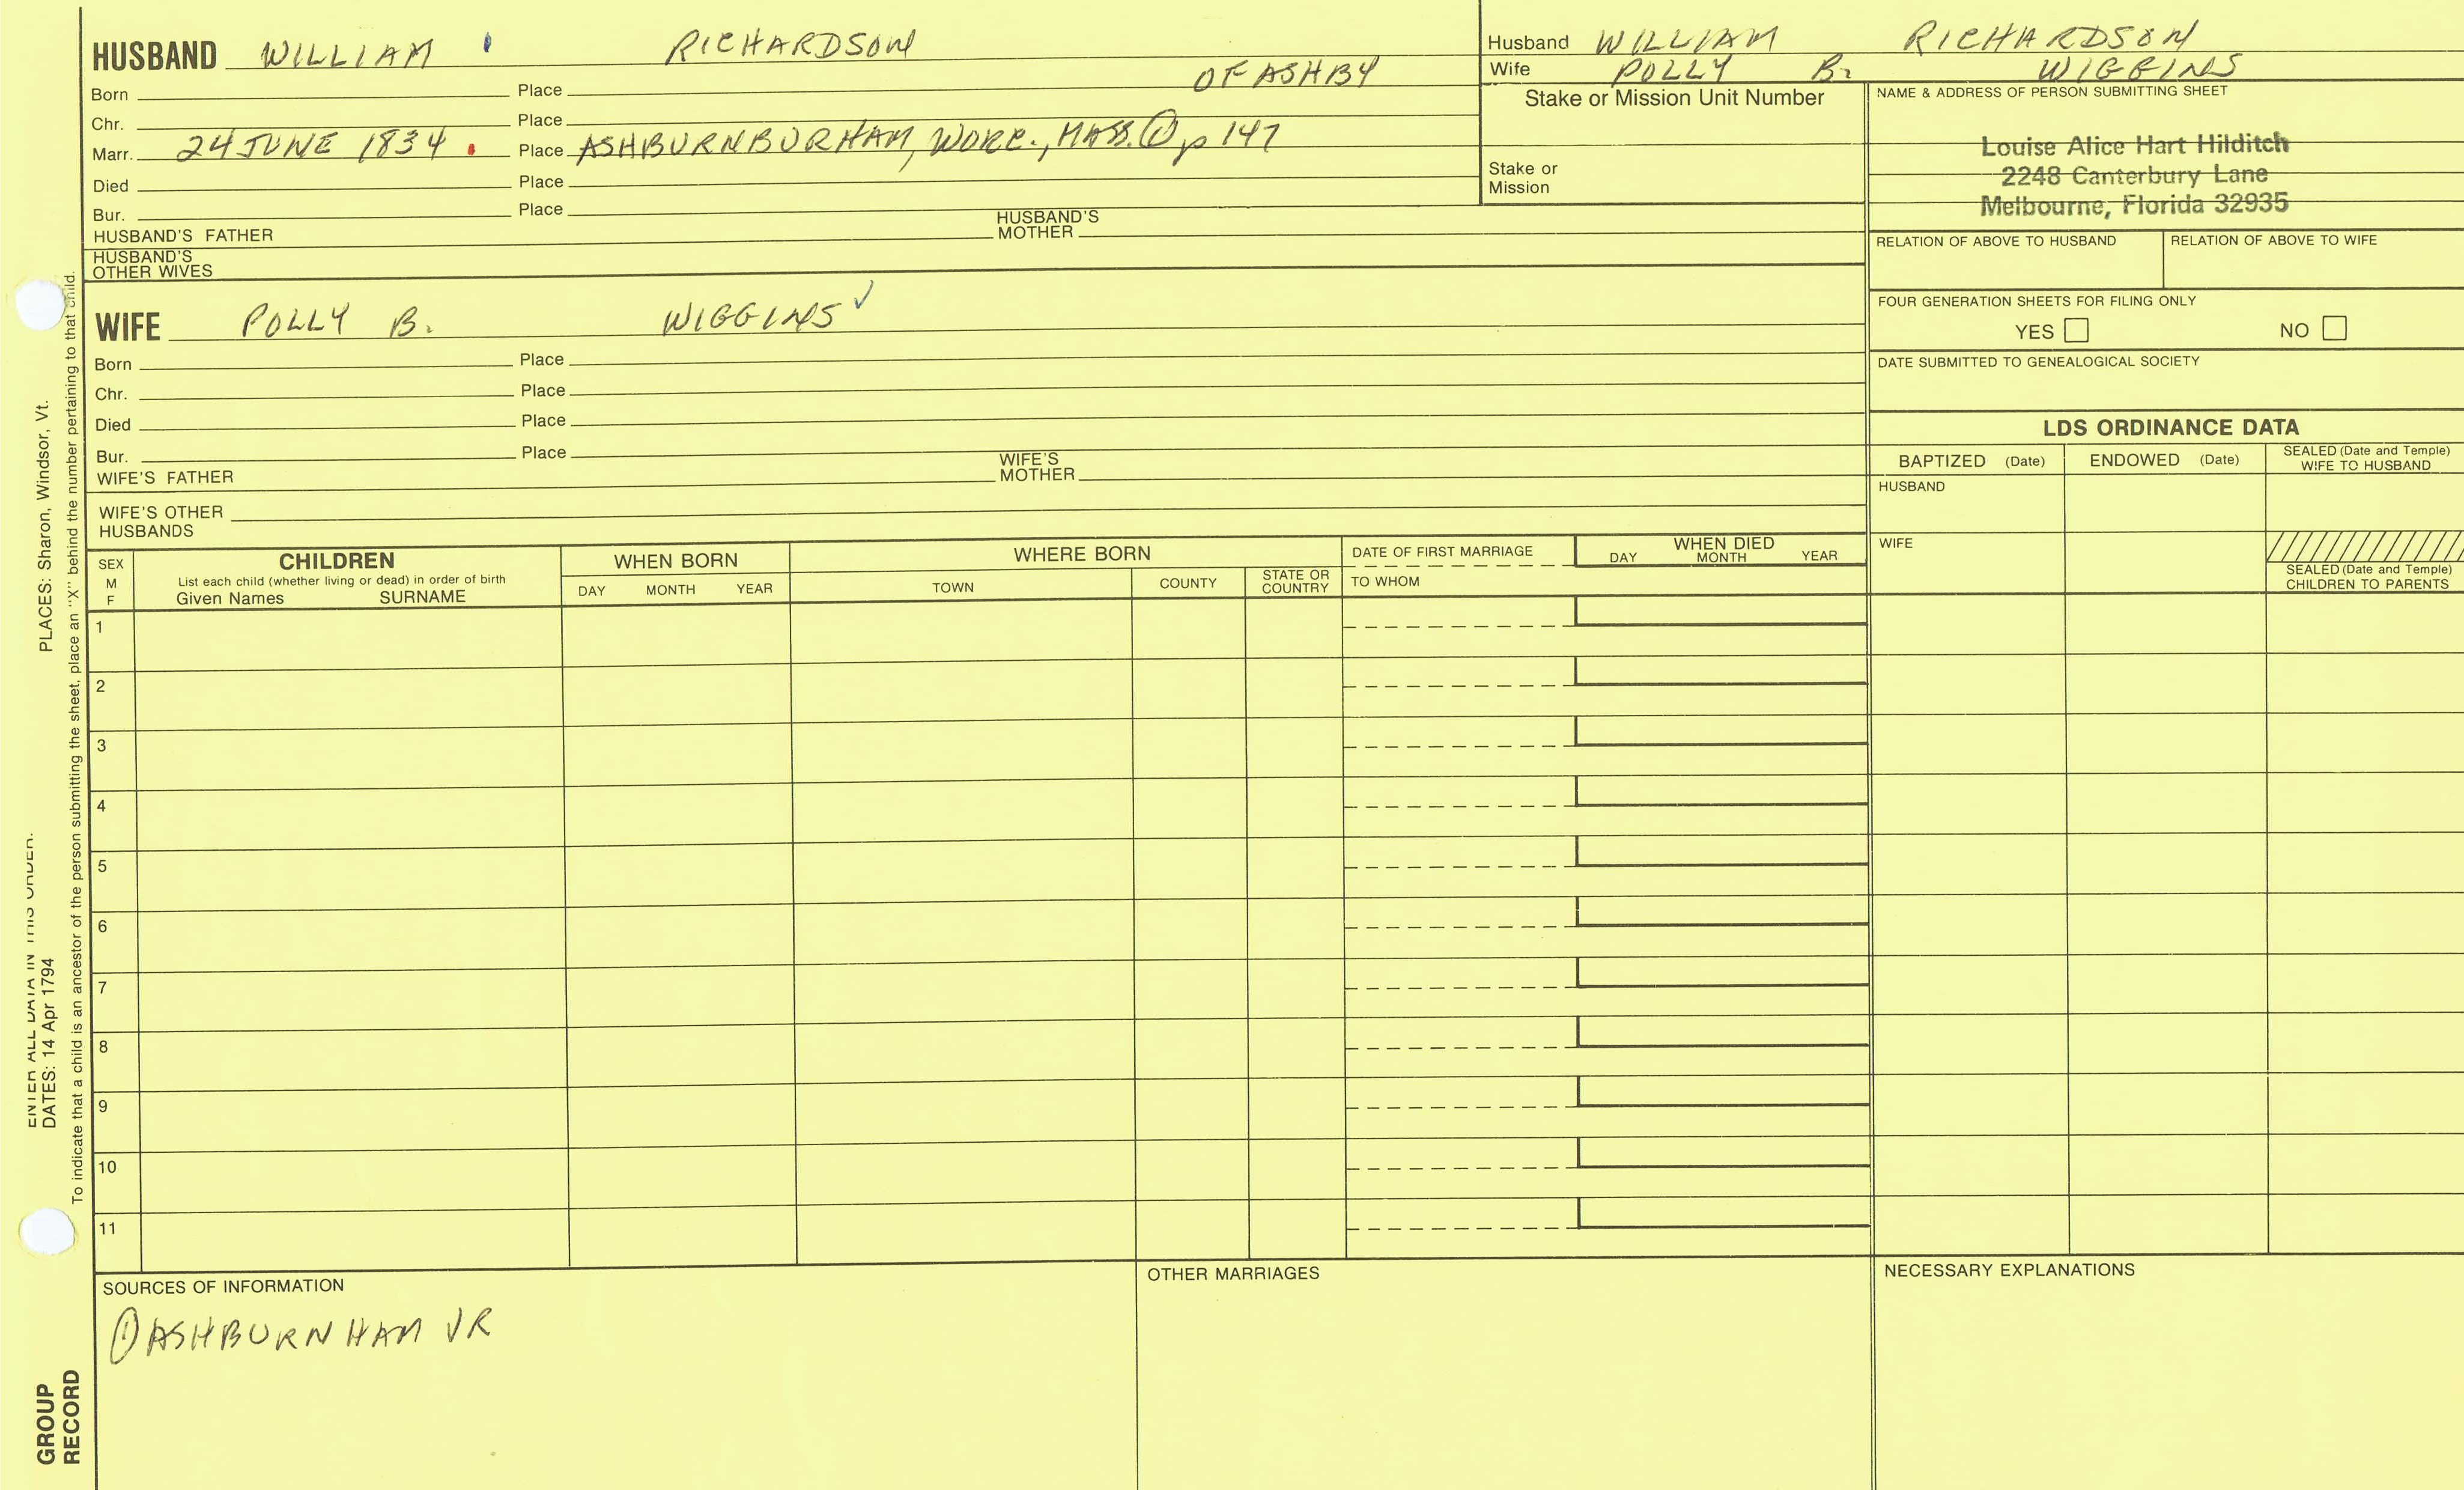 HUSBAND WILLIAM RICHARDSON
OF ASHBY
Born Place
Chr. Place
Marr. 24 JUNE 1834. Place ASHBURNBURHAM, WORC., MASS. ① p 147
Died Place
Bur. Place
HUSBAND'S FATHER HUSBAND'S MOTHER
HUSBAND'S OTHER WIVES
WIFE POLLY B. WIGGINS ✓
Born Place
Chr. Place
Died Place
Bur. Place
WIFE'S FATHER WIFE'S MOTHER
WIFE'S OTHER HUSBANDS
Husband WILLIAM RICHARDSON
Wife POLLY B. WIGGINS
Stake or Mission Unit Number
Stake or
Mission
NAME & ADDRESS OF PERSON SUBMITTING SHEET
Louise Alice Hart Hilditch
2248 Canterbury Lane
Melbourne, Florida 32935
RELATION OF ABOVE TO HUSBAND RELATION OF ABOVE TO WIFE
FOUR GENERATION SHEETS FOR FILING ONLY
YES NO
DATE SUBMITTED TO GENEALOGICAL SOCIETY
LDS ORDINANCE DATA
BAPTIZED (Date) ENDOWED (Date) SEALED (Date and Temple) WIFE TO HUSBAND
HUSBAND
WIFE
SEALED (Date and Temple)
CHILDREN TO PARENTS
SEX
M
F
CHILDREN
List each child (whether living or dead) in order of birth
Given Names SURNAME
WHEN BORN
DAY MONTH YEAR
WHERE BORN
TOWN COUNTY STATE OR COUNTRY
DATE OF FIRST MARRIAGE
TO WHOM
WHEN DIED
DAY MONTH YEAR
1
2
3
4
5
6
7
8
9
10
11
SOURCES OF INFORMATION
① ASHBURNHAM VR
OTHER MARRIAGES
NECESSARY EXPLANATIONS
ENTER ALL DATA IN THIS ORDER.
DATES: 14 Apr 1794 PLACES: Sharon, Windsor, Vt.
To indicate that a child is an ancestor of the person submitting the sheet, place an "X" behind the number pertaining to that child.
GROUP
RECORD